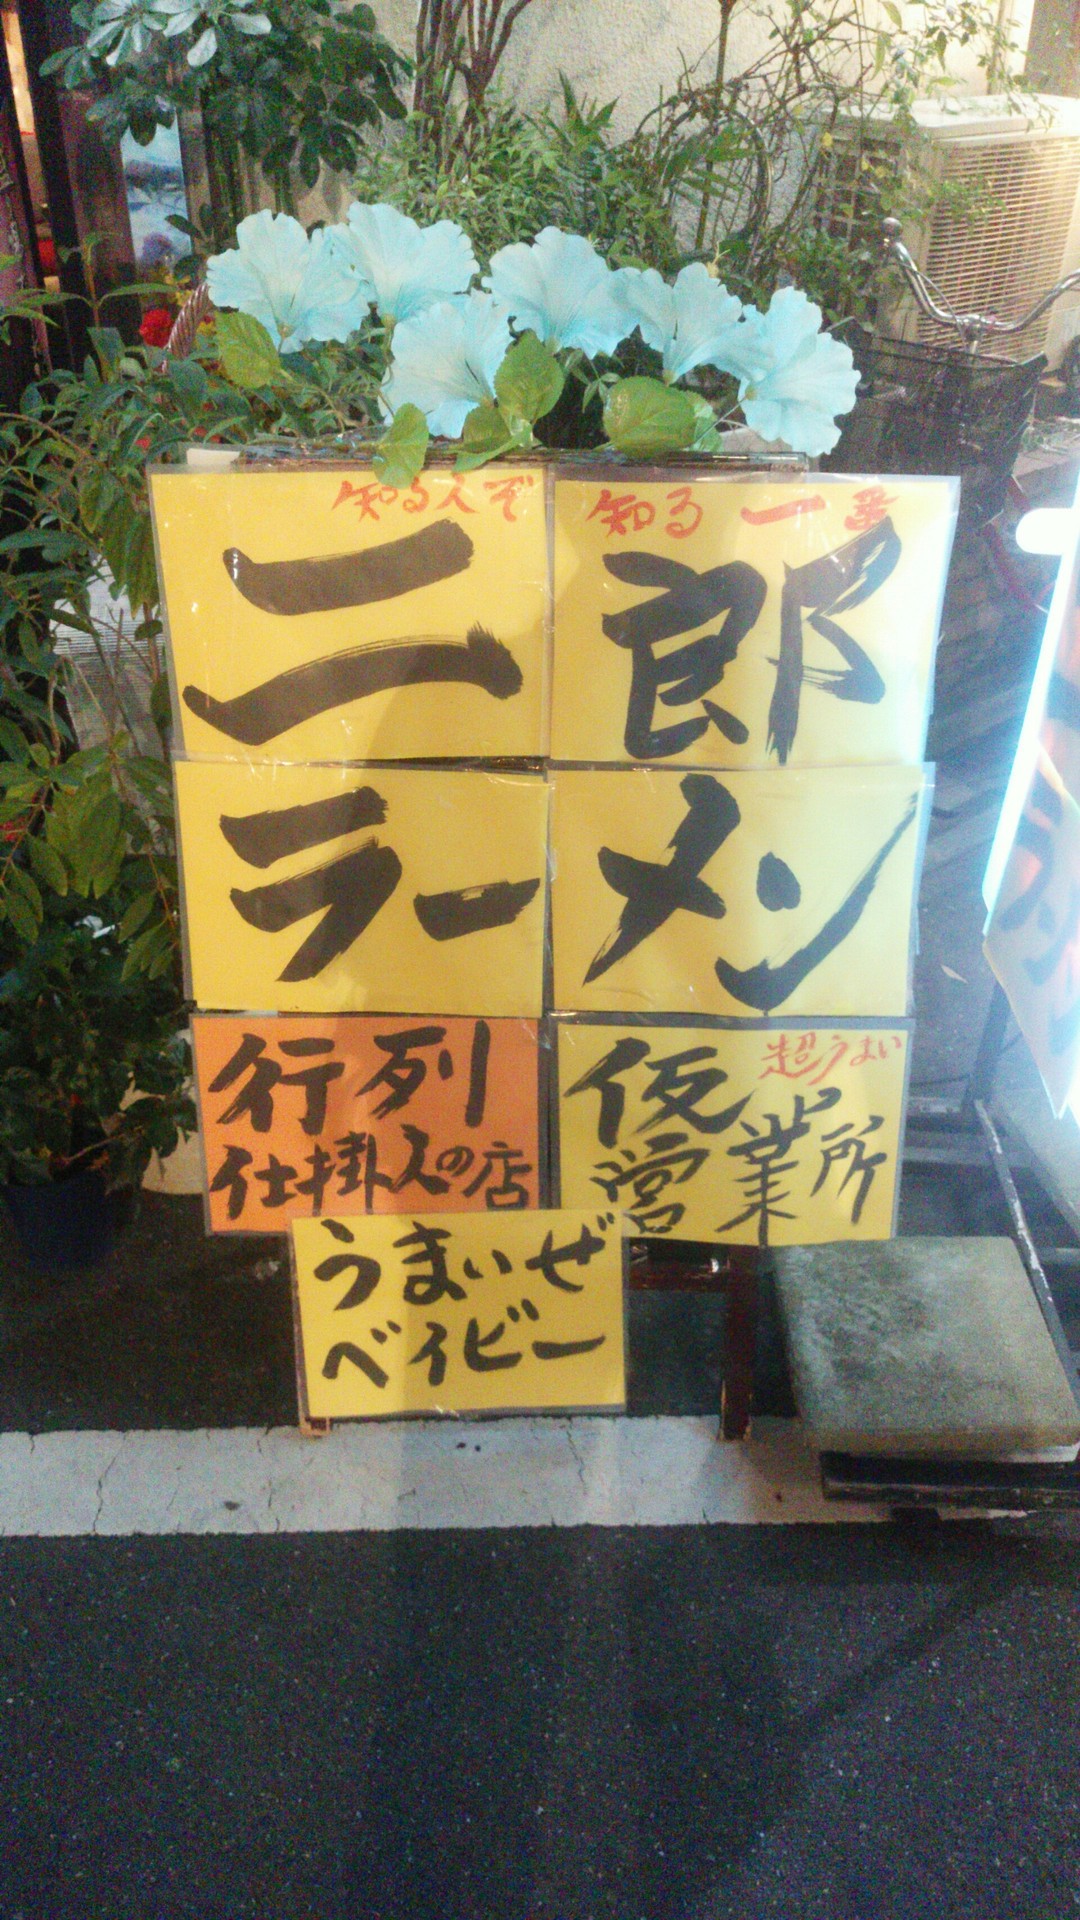 知る人ぞ知る一番
二郎
ラーメン
行列
仕掛人の店
超うまい
仮
営業所
うまいぜ
ベイビー